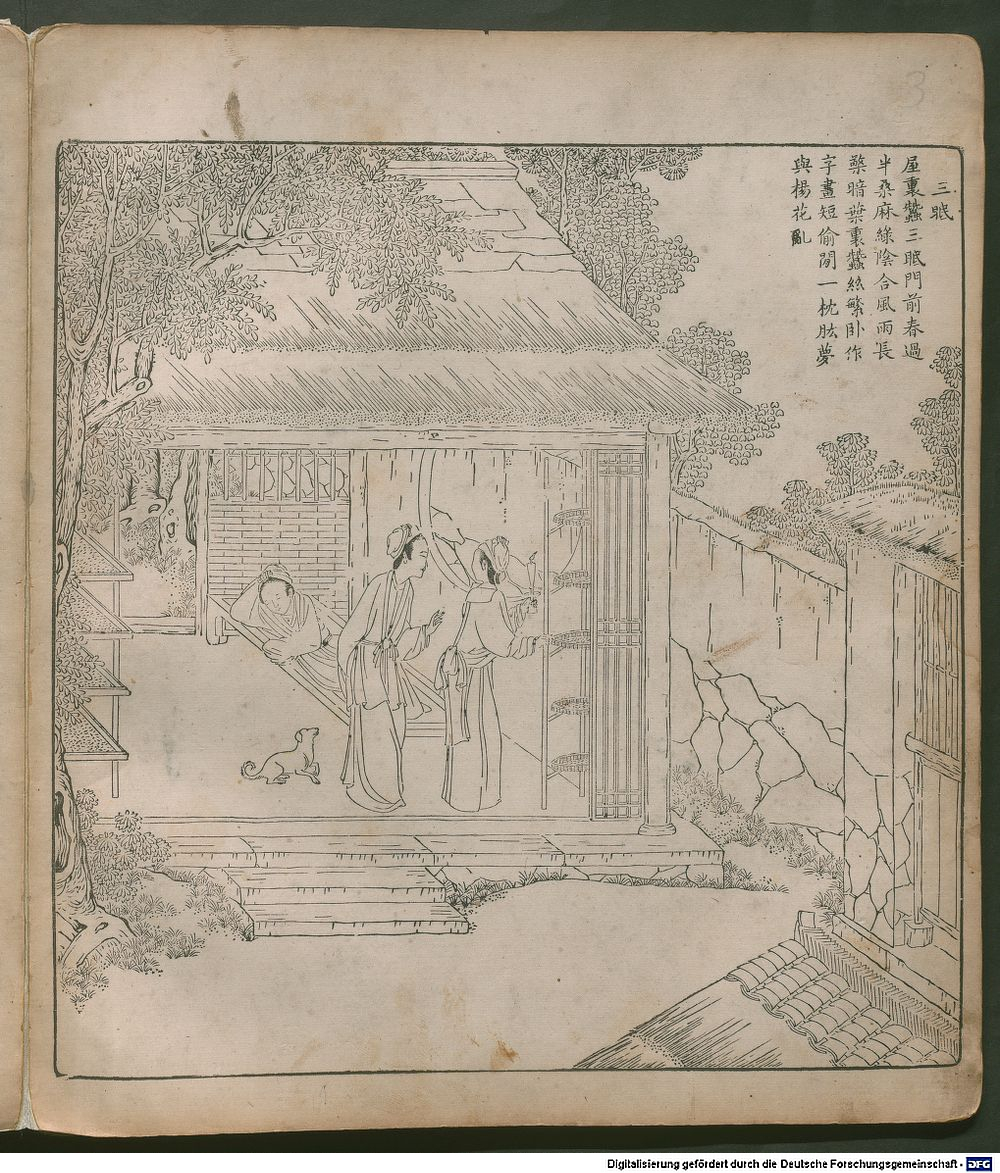 三眠
屋裏蠶三眠門前春過
半桑麻綠陰合風雨長
檠暗葉裏蠶絲繁卧作
字畫短偷閒一枕肱夢
與楊花亂
3
Digitalisierung gefördert durch die Deutsche Forschungsgemeinschaft - DFG